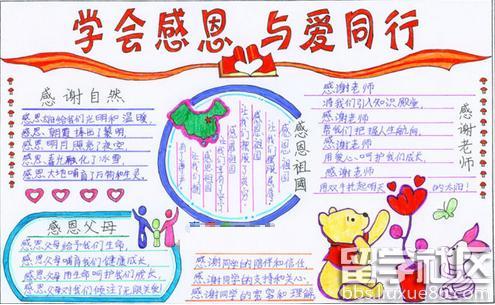 学会感恩 与爱同行
感谢自然
感恩
给我们光明和温暖,
感恩朝霞捧出黎明,
感恩明月照亮夜空
感恩春光融化冰雪,
感恩大地哺育万物和生灵。
感恩父母
感恩父母给予我们生命,
感恩父母哺育我们健康成长,
感恩父母用生命呵护我们成长,
感恩父母对我们倾注了无限关爱!
感恩祖国
感恩祖国
感恩祖国
感恩祖国
感谢老师
感谢老师
将我们引入知识殿堂,
感谢老师
帮我们把握人生航向,
感谢老师
用爱心呵护我们成长,
感谢老师
用双手托起明天
的太阳!
感谢同学的陪伴和信任,
感谢同学的支持和关心,
感谢同学的宽容和理解,
留学社区
bbs.liuxue86.com